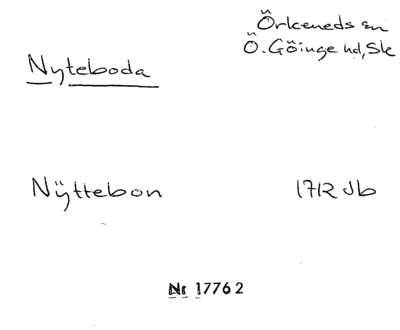 Örkeneds sn
Ö. Göinge hd, Sk
Nyteboda
Nÿttebon 1712 Jb
Nr 17762